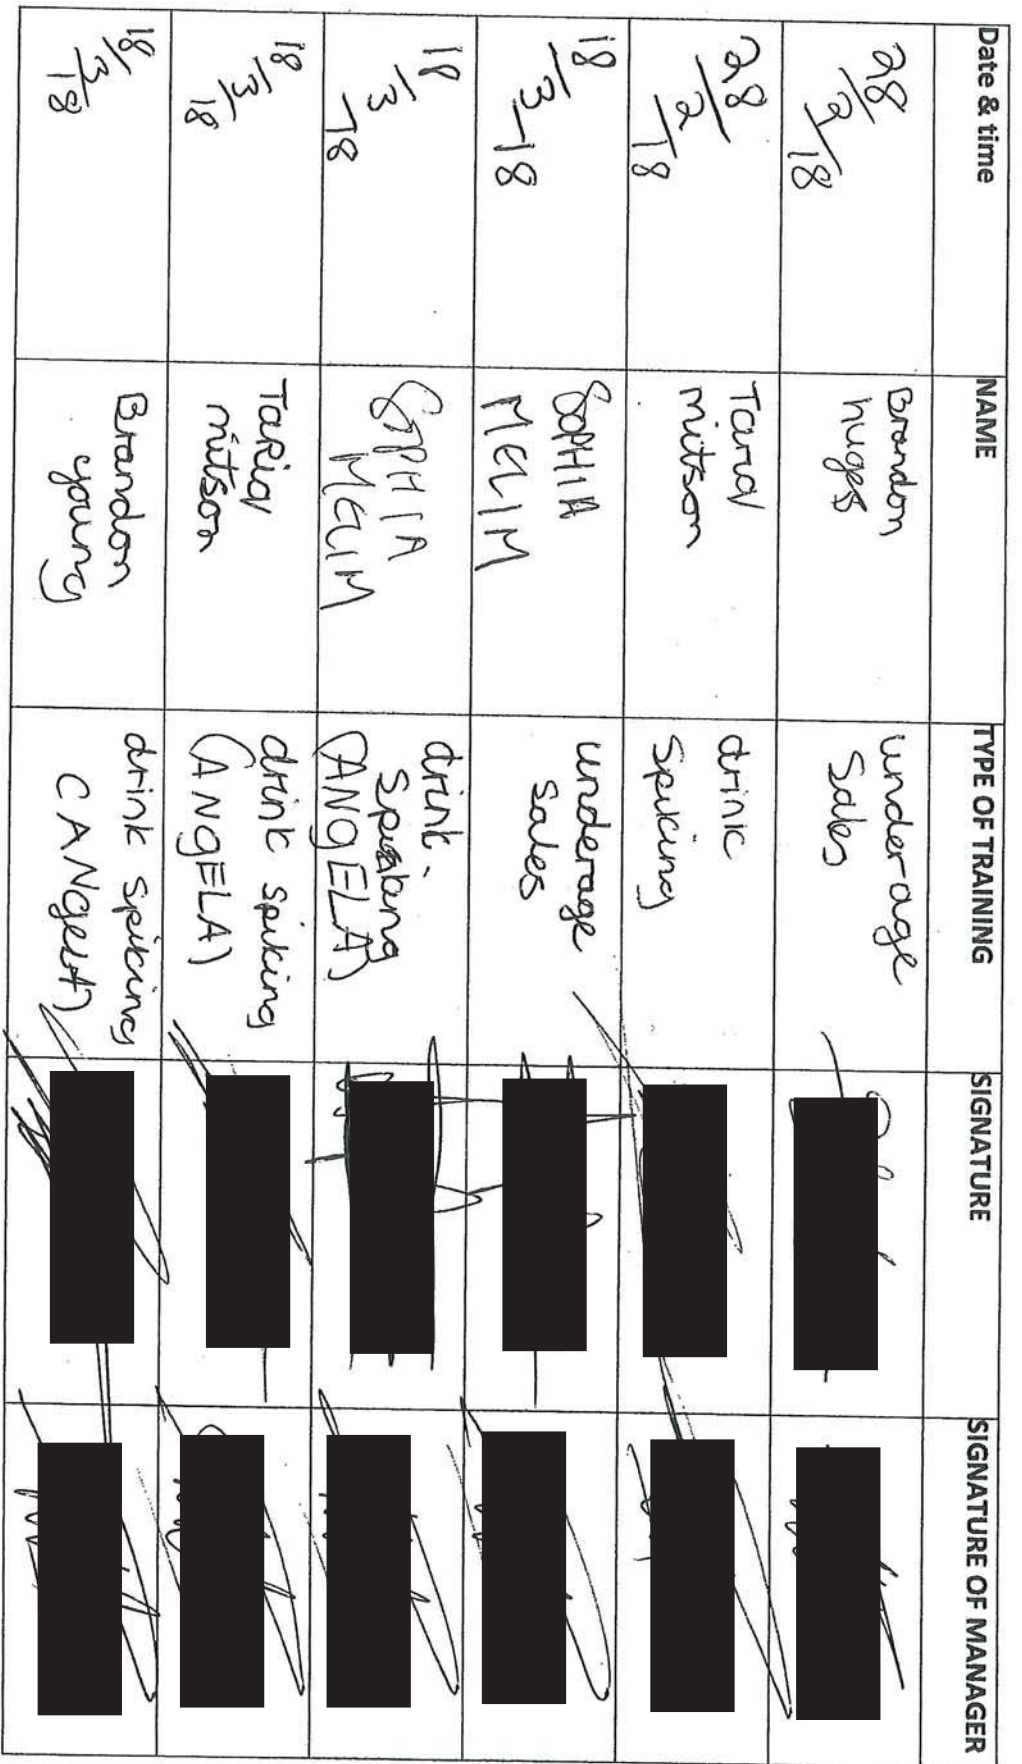 Date & time NAME TYPE OF TRAINING SIGNATURE SIGNATURE OF MANAGER
28/2/18 Brandon huges underage Sales
28/2/18 Tariq mitson drink Spiking
18/3-18 SOPHIA MELIM underage sales
18/3/18 SOPHIA MELIM drink. Spiking (ANGELA)
18/3/18 TaRiq mitson drink spiking (ANGELA)
18/3/18 Brandon young drink spiking (ANgELA)